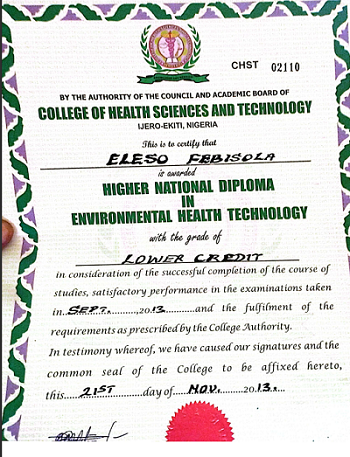 CHST 02110
BY THE AUTHORITY OF THE COUNCIL AND ACADEMIC BOARD OF
COLLEGE OF HEALTH SCIENCES AND TECHNOLOGY
IJERO-EKITI, NIGERIA
This is to certify that
ELESO FEBISOLA
is awarded
HIGHER NATIONAL DIPLOMA
IN
ENVIRONMENTAL HEALTH TECHNOLOGY
with the grade of
LOWER CREDIT
in consideration of the successful completion of the course of
studies, satisfactory performance in the examinations taken
in SEPT. 2013 and the fulfilment of the
requirements as prescribed by the College Authority.
In testimony whereof, we have caused our signatures and the
common seal of the College to be affixed hereto,
this 21ST day of NOV. 2013